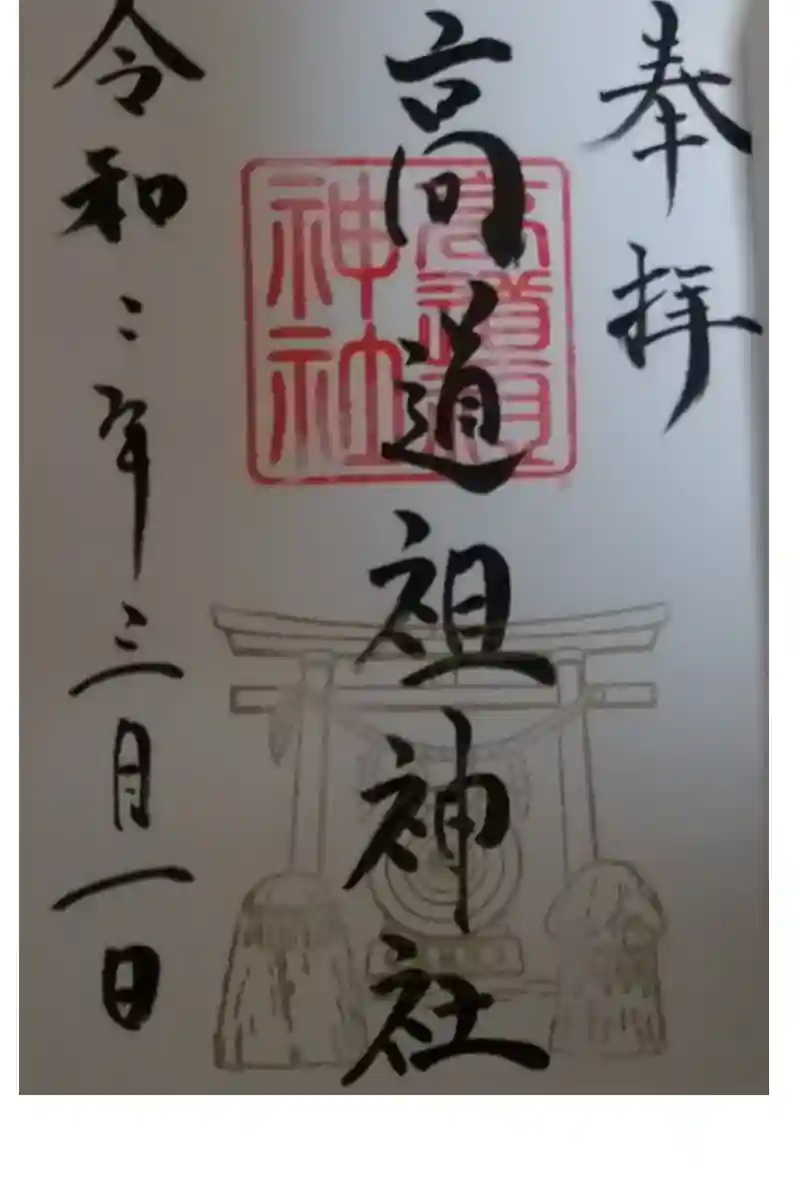 奉拝
高道祖神社
高道祖
神社
令和二年三月一日